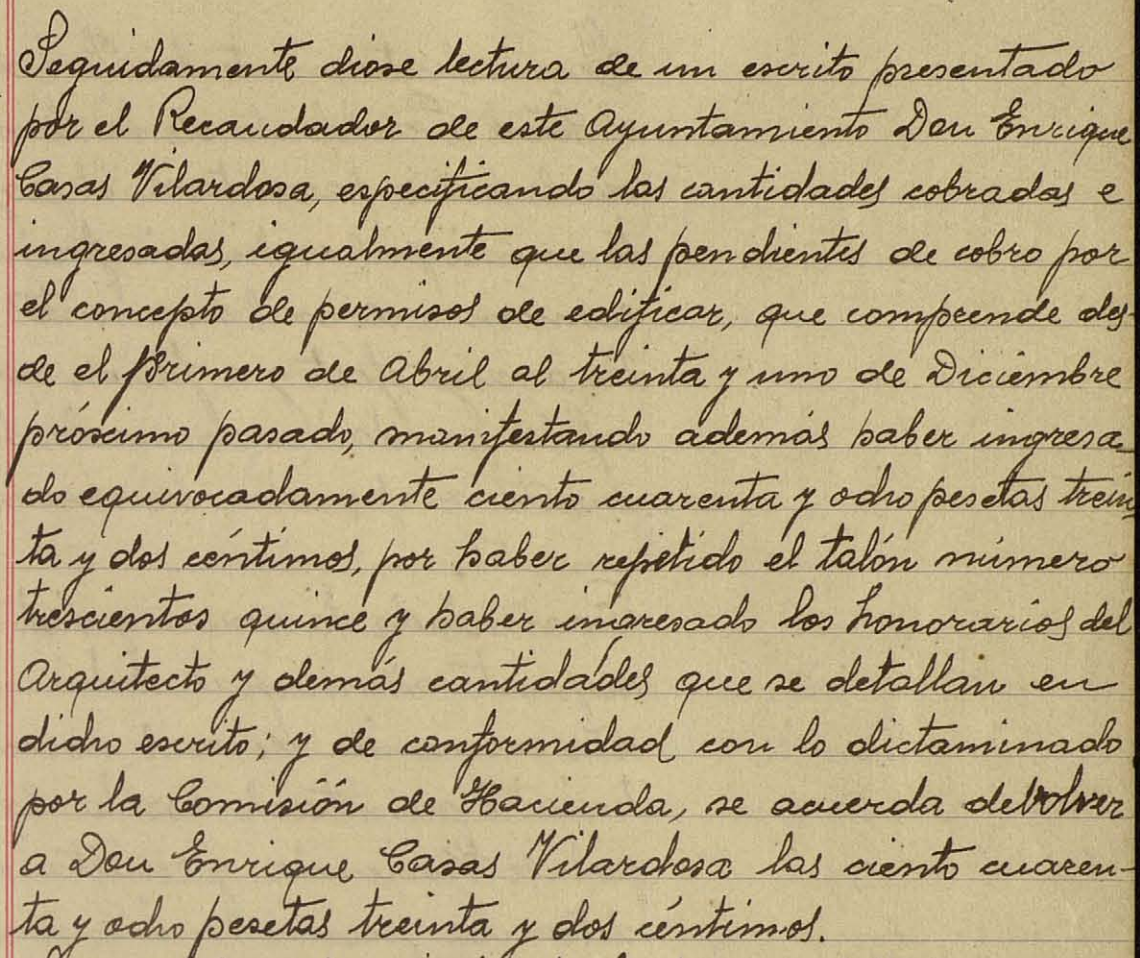 Seguidamente diose lectura de un escrito presentado
por el Recaudador de este Ayuntamiento Don Enrique
Casas Vilardosa, especificando las cantidades cobradas e
ingresadas, igualmente que las pendientes de cobro por
el concepto de permisos de edificar, que comprende des-
de el primero de Abril al treinta y uno de Diciembre
próximo pasado, manifestando además haber ingresa-
do equivocadamente ciento cuarenta y ocho pesetas trein-
ta y dos céntimos, por haber repetido el talón número
trescientos quince y haber ingresado los honorarios del
Arquitecto y demás cantidades que se detallan en
dicho escrito; y de conformidad con lo dictaminado
por la Comisión de Hacienda, se acuerda debolver
a Don Enrique Casas Vilardosa las ciento cuaren-
ta y ocho pesetas treinta y dos céntimos.